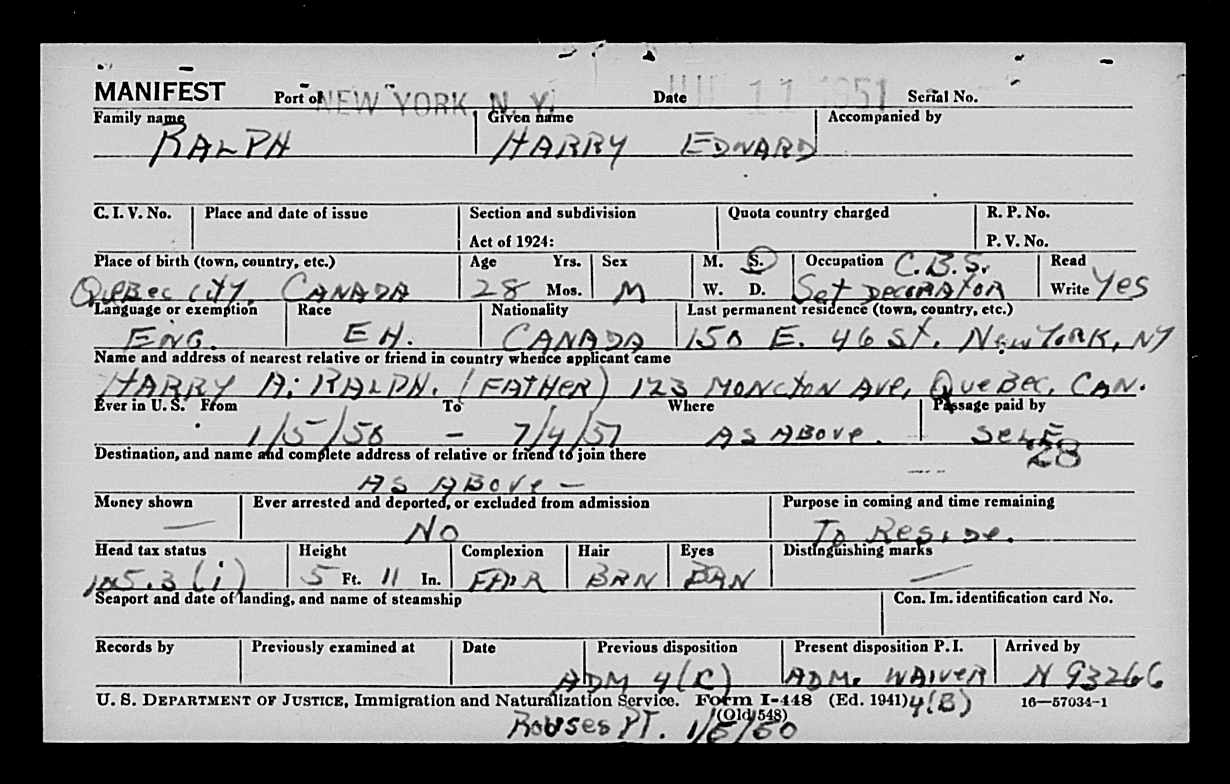 MANIFEST Port of NEW YORK, N. Y. Date JUL 11 1951 Serial No.
Family name Given name Accompanied by
RALPH HARRY EDWARD
C. I. V. No. Place and date of issue Section and subdivision Quota country charged R. P. No.
Act of 1924: P. V. No.
Place of birth (town, country, etc.) Age Yrs. Sex M. S. Occupation C.B.S. Read
QUEBEC CITY. CANADA 28 Mos. M W. D. Set DECORATOR Write Yes
Language or exemption Race Nationality Last permanent residence (town, country, etc.)
ENG. EH. CANADA 150 E. 46 St. New YORK, NY
Name and address of nearest relative or friend in country whence applicant came
HARRY A. RALPH. (FATHER) 123 MONCTON AVE, QUEBEC, CAN.
Ever in U. S. From To Where Passage paid by
1/5/50 - 7/4/51 AS ABOVE. SELF
28
Destination, and name and complete address of relative or friend to join there
AS ABOVE -
Money shown Ever arrested and deported, or excluded from admission Purpose in coming and time remaining
— NO To Reside.
Head tax status Height Complexion Hair Eyes Distinguishing marks
105.3(i) 5 Ft. 11 In. FAIR BRN BRN —
Seaport and date of landing, and name of steamship Con. Im. identification card No.
Records by Previously examined at Date Previous disposition Present disposition P. I. Arrived by
ADM 4(C) ADM. WAIVER N 93266
U. S. DEPARTMENT OF JUSTICE, Immigration and Naturalization Service. Form I-448 (Ed. 1941) 4(B) 16—57034-1
(Old 548)
Rouses PT. 1/5/50